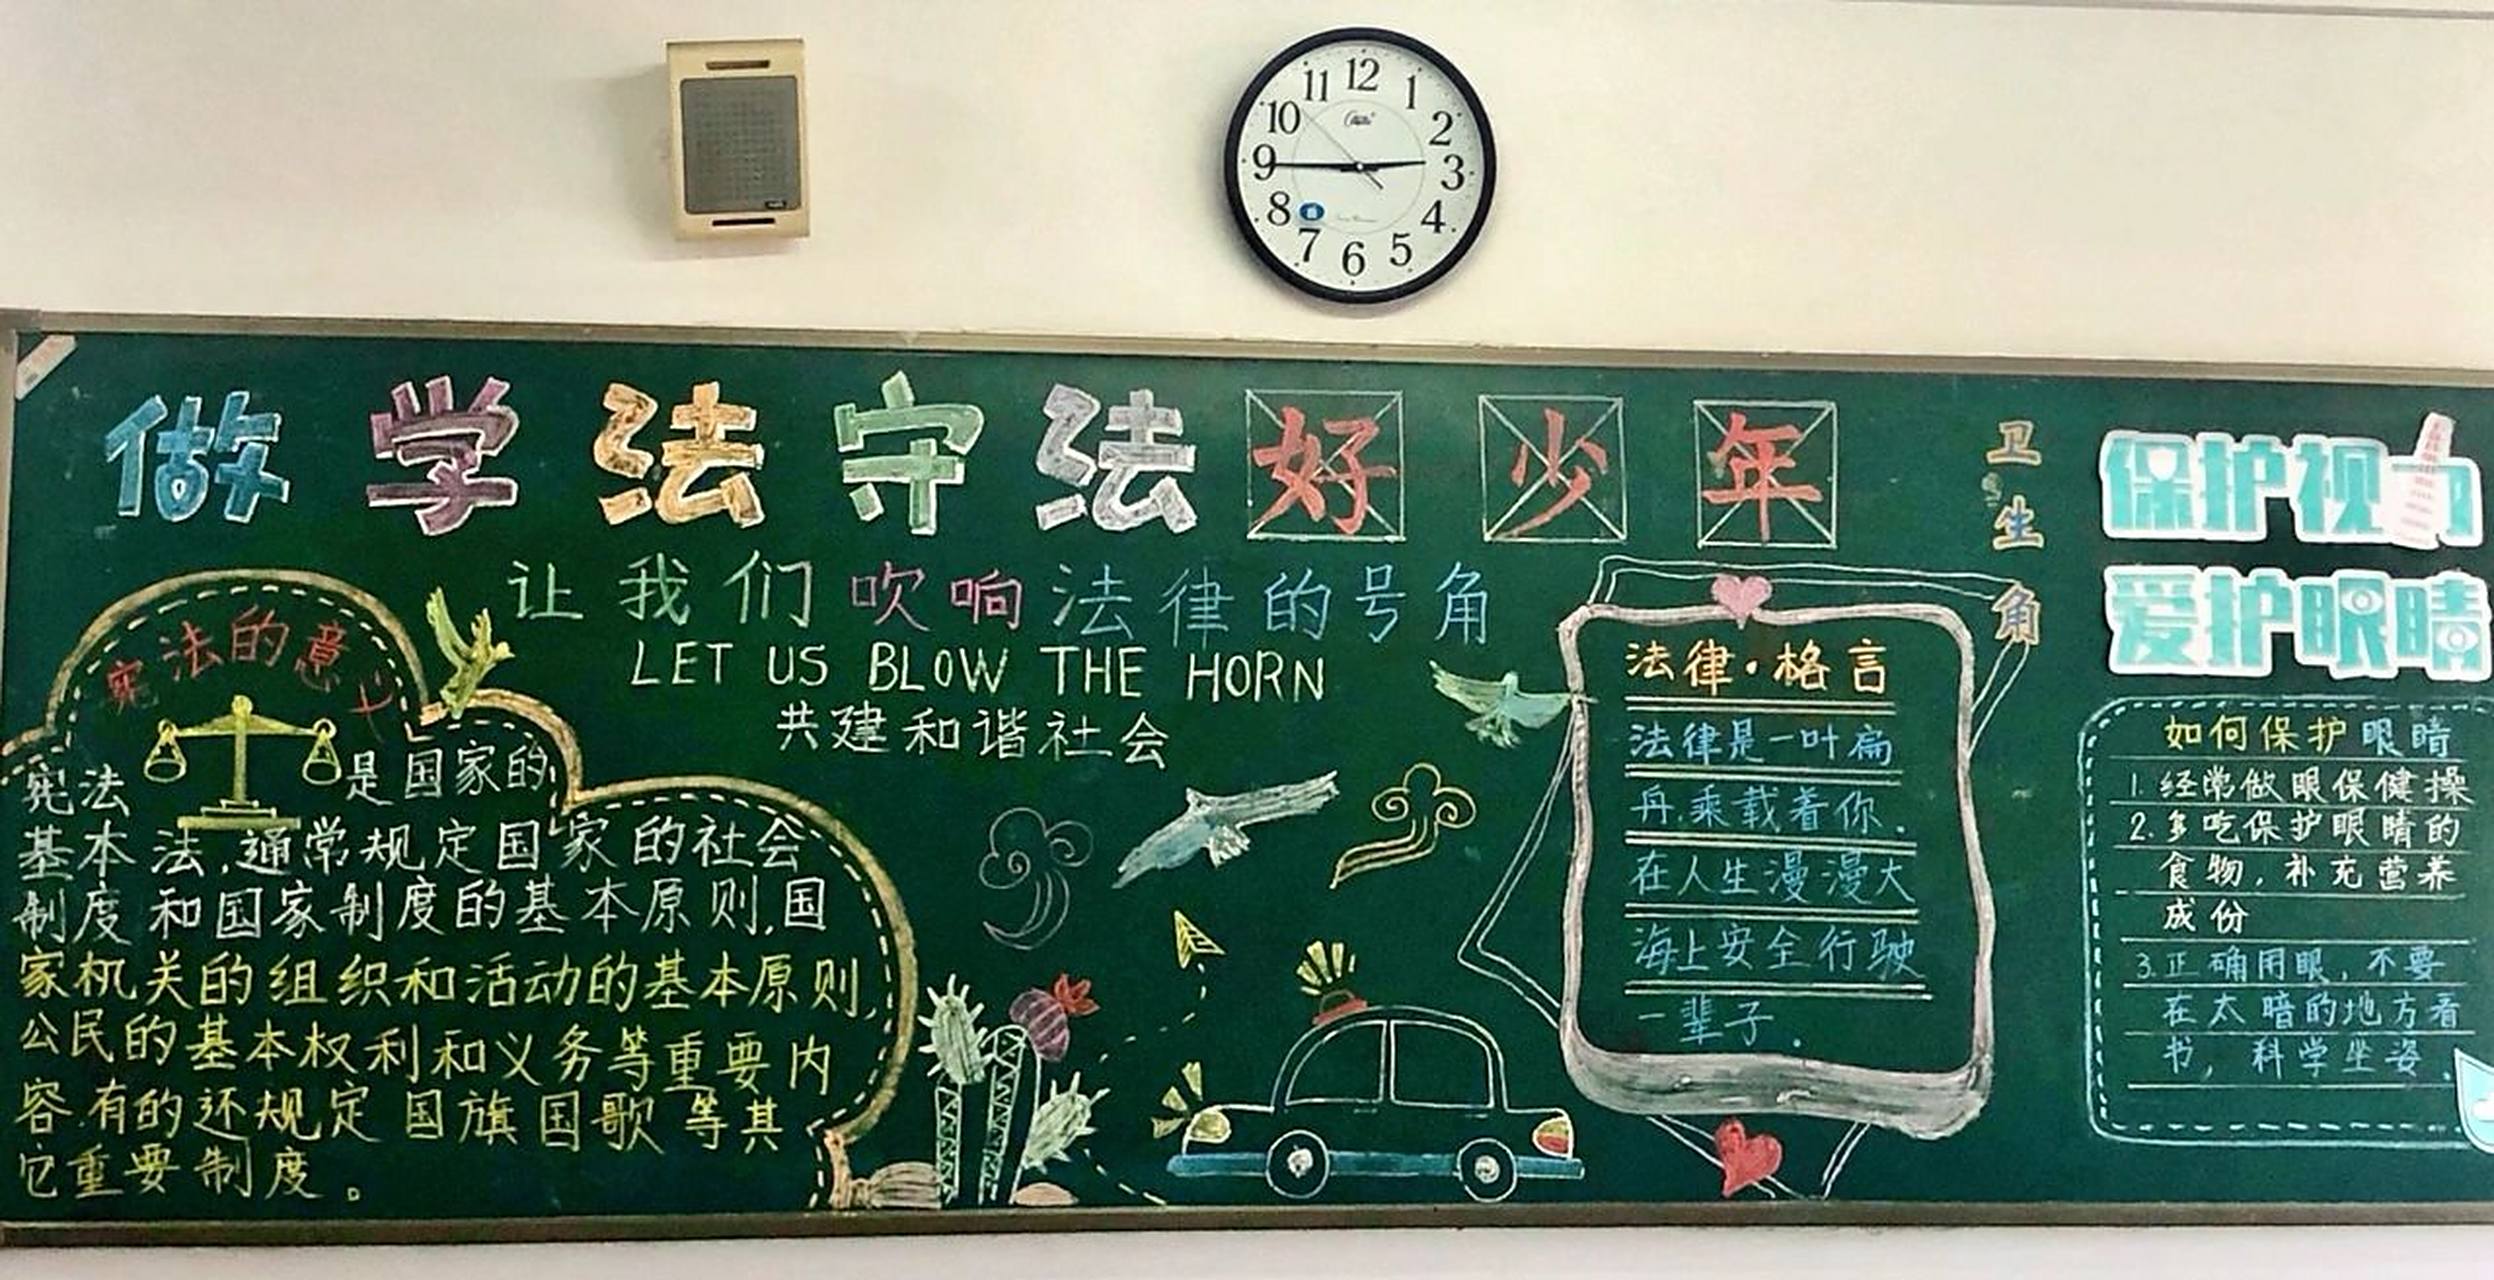 11 12 1
10 2
9 3
8 4
7 6 5
做学法守法好少年
让我们吹响法律的号角
LET US BLOW THE HORN
共建和谐社会
宪法的意义
宪法是国家的
基本法,通常规定国家的社会
制度和国家制度的基本原则,国
家机关的组织和活动的基本原则,
公民的基本权利和义务等重要内
容.有的还规定国旗国歌等其
它重要制度。
法律·格言
法律是一叶扁
舟.乘载着你.
在人生漫漫大
海上安全行驶
一辈子.
卫生角
保护视力
爱护眼睛
如何保护眼睛
1.经常做眼保健操
2.多吃保护眼睛的
食物,补充营养
成份
3.正确用眼,不要
在太暗的地方看
书,科学坐姿.